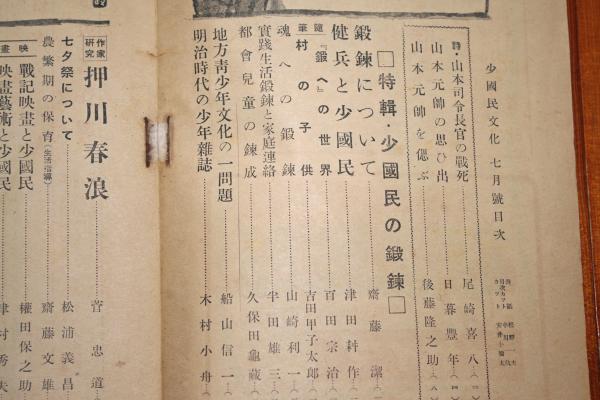 少國民文化 七月號目次
詩・山本司令長官の戰死……尾崎喜八
山本元帥の思ひ出……日暮豐年
山本元帥を偲ぶ……後藤隆之助
□特輯・少國民の鍛鍊□
鍛鍊について……齋藤潔
健兵と少國民……津田耕作
隨筆『鍛へ』の世界……百田宗治
村の子供……吉田甲子太郎
魂への鍛鍊……山崎利一
實踐生活鍛鍊と家庭連絡……半田雄三
都會兒童の鍊成……久保田龜藏
地方靑少年文化の一問題……船山信一
明治時代の少年雜誌……木村小舟
作家研究 押川春浪……菅忠道
七夕祭について……松浦義昌
農繁期の保育(生活指導)……齋藤文雄
戰記映畫と少國民……權田保之助
映畫藝術と少國民……津村秀夫